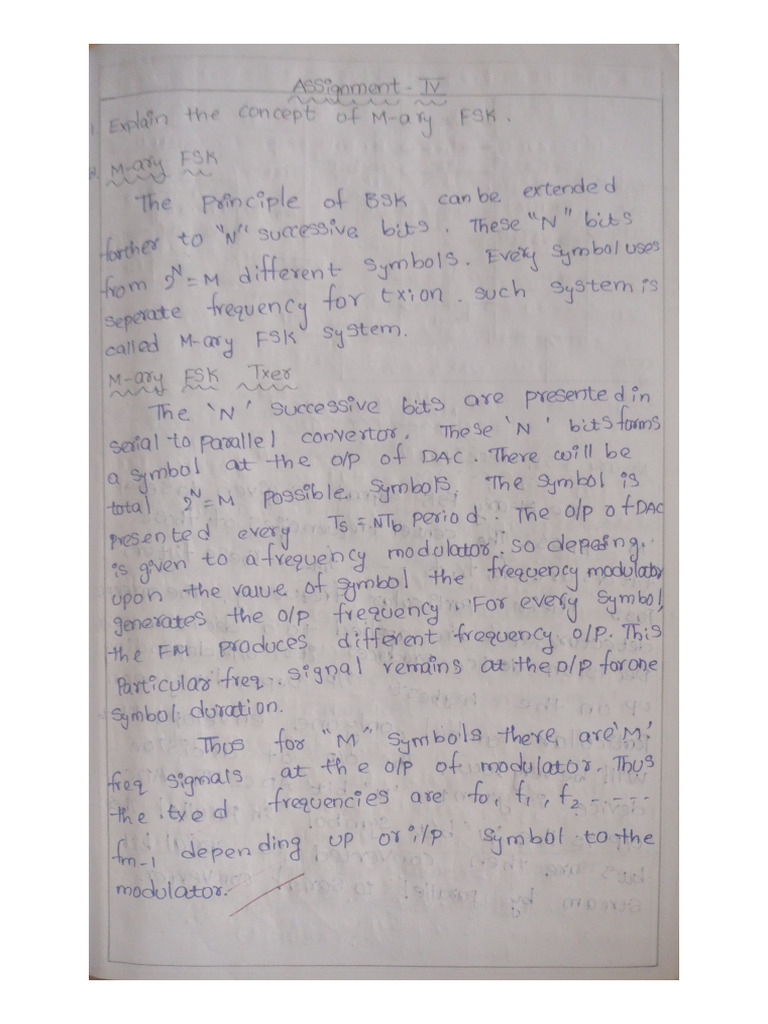 Assignment - IV
1. Explain the concept of M-ary FSK.
M-ary FSK
The Principle of BSK can be extended
farther to "N" successive bits. These "N" bits
from 2^N = M different symbols. Every symbol uses
seperate frequency for txion. such system is
called M-ary FSK system.
M-ary FSK Txer
The 'N' successive bits are presented in
serial to parallel convertor. These 'N' bits forms
a symbol at the o/p of DAC. There will be
total 2^N = M possible symbols. The symbol is
presented every Ts = NTb period. The o/p of DAC
is given to a frequency modulator. so depeing.
upon the value of symbol the frequency modulator
generates the o/p frequency. For every symbol,
the FM produces different frequency o/p. This
Particular freq. signal remains at the o/p for one
symbol duration.
Thus for "M" symbols there are 'M'
freq signals at the o/p of modulator. Thus
the txed frequencies are f0, f1, f2 - - - -
fm-1 depending up or i/p symbol to the
modulator.